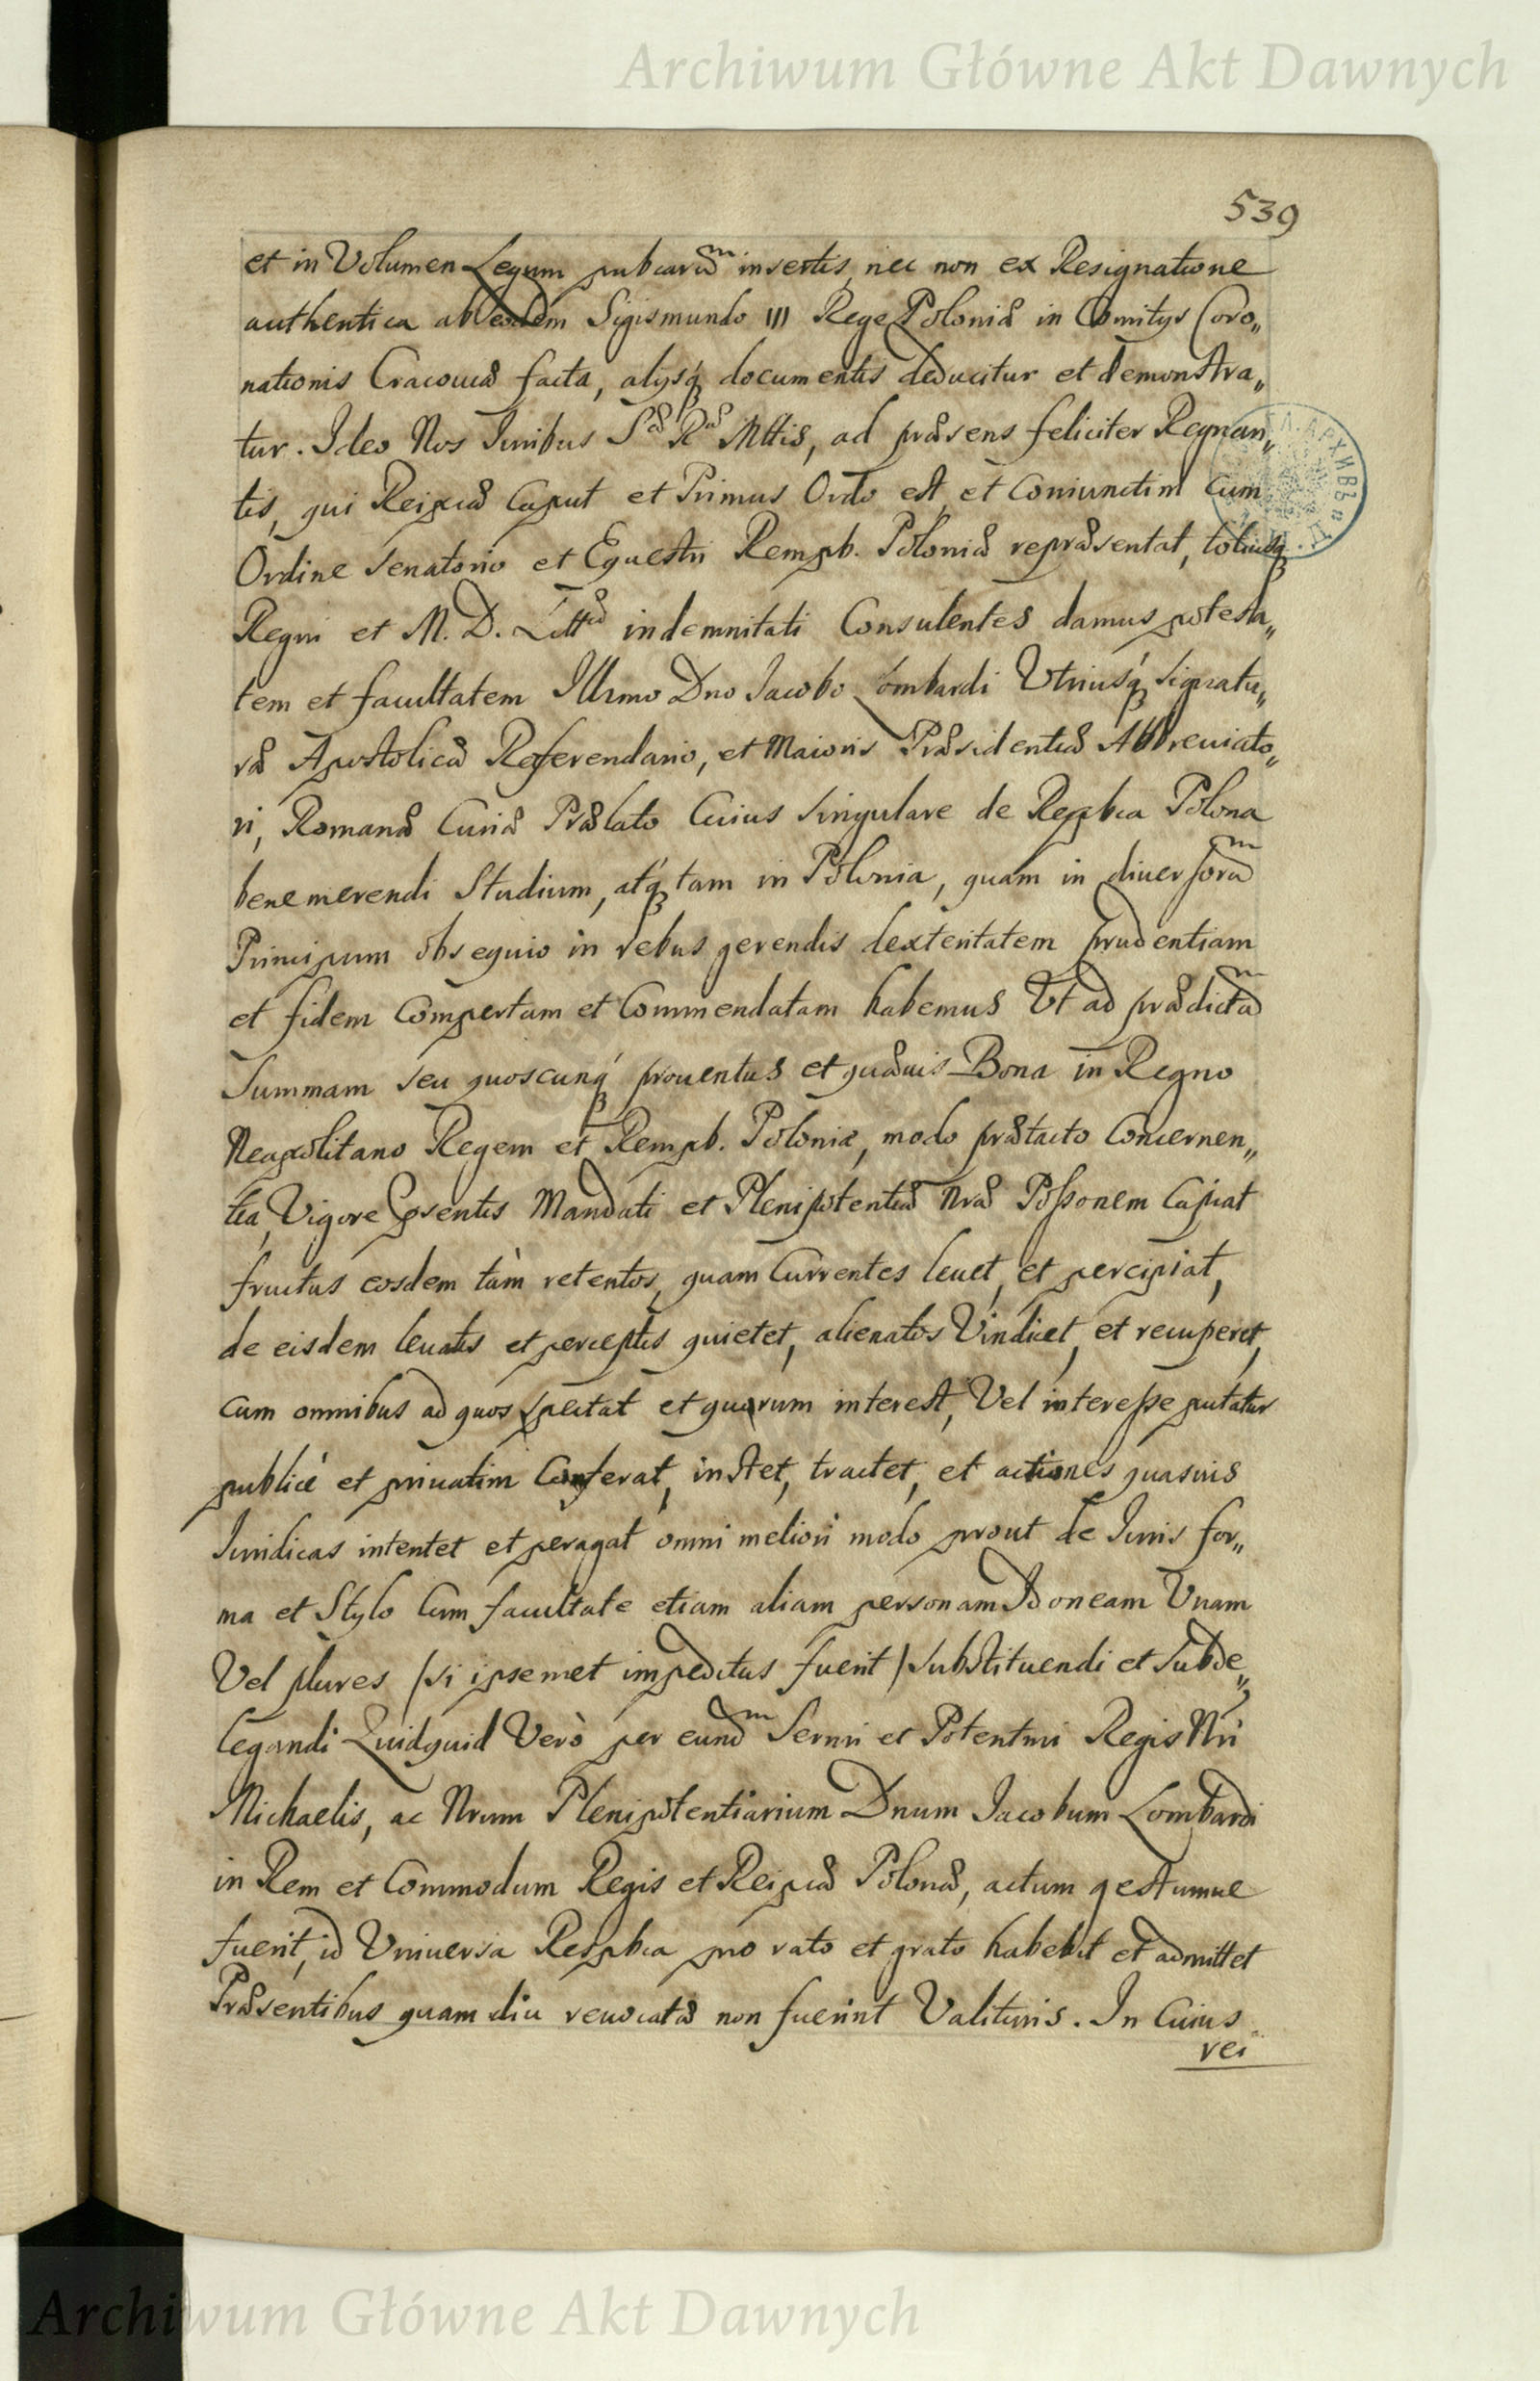 Archiwum Główne Akt Dawnych
539
et in Volumen Legum pubcarū insertis, nec non ex Resignatione
authentica ab eodem Sigismundo III Rege Poloniæ in Comitijs Coro„
nationis Cracoviæ facta, alijsq́ documentis deducitur et demonstra„
tur. Ideo Nos Iuribus Sæ Ræ Mttis, ad præsens feliciter Regnan„
tis, qui Reipcæ Caput et Primus Ordo est, et Coniunctim Cum
Ordine Senatorio et Equestri Rempb. Poloniæ repræsentat, totiusq́
Regni et M. D. Littæ indemnitati Consulentes damus potesta„
tem et facultatem Illrmo Dno Iacobo Lombardi Vtriusq́ Signatu„
ræ Apostolicæ Referendario, et Maioris Præsidentiæ Abbreuiato„
ri, Romanæ Curiæ Prælato Cuius singulare de Repbca Polona
bene merendi Studium, atq́ tam in Polonia, quam in diuersorū
Principum obsequio in rebus gerendis dexteritatem prudentiam
et fidem Compertam et Commendatam habemus Vt ad prædictā
Summam seu quoscunq́ prouentus et quæuis Bona in Regno
Neapolitano Regem et Rempb. Poloniæ, modo prætacto Concernen„
tia, Vigore Presentis Mandati et Plenipotentiæ Nræ Possonem Capiat
fructus eosdem tàm retentos, quam Currentes leuet, et percipiat,
de eisdem leuatis et perceptis quietet, alienatos Vindicet, et recuperet,
cum omnibus ad quos spectat et quorum interest, Vel interesse putatur
publicè et priuatim Conferat, instet, tractet, et actiones quasuis
Iuridicas intentet et peragat omni meliori modo prout de Iuris for„
ma et Stylo Cum facultate etiam aliam personam Idoneam Vnam
Vel plures /si ipsemet impeditus fuerit/ substituendi et subde„
legandi Quidquid Verò per eundm Sermi et Potentmi Regis Nri
Michaelis, ac Nrum Plenipotentiarium Dnum Iacobum Lombardi
in Rem et Commodum Regis et Reipcæ Polonæ, actum gestumue
fuerit, id Vniuersa Respbca pro rato et grato habebit et admittet
Præsentibus quam diu reuocatæ non fuerint Valituris. In Cuius
rei
Archiwum Główne Akt Dawnych